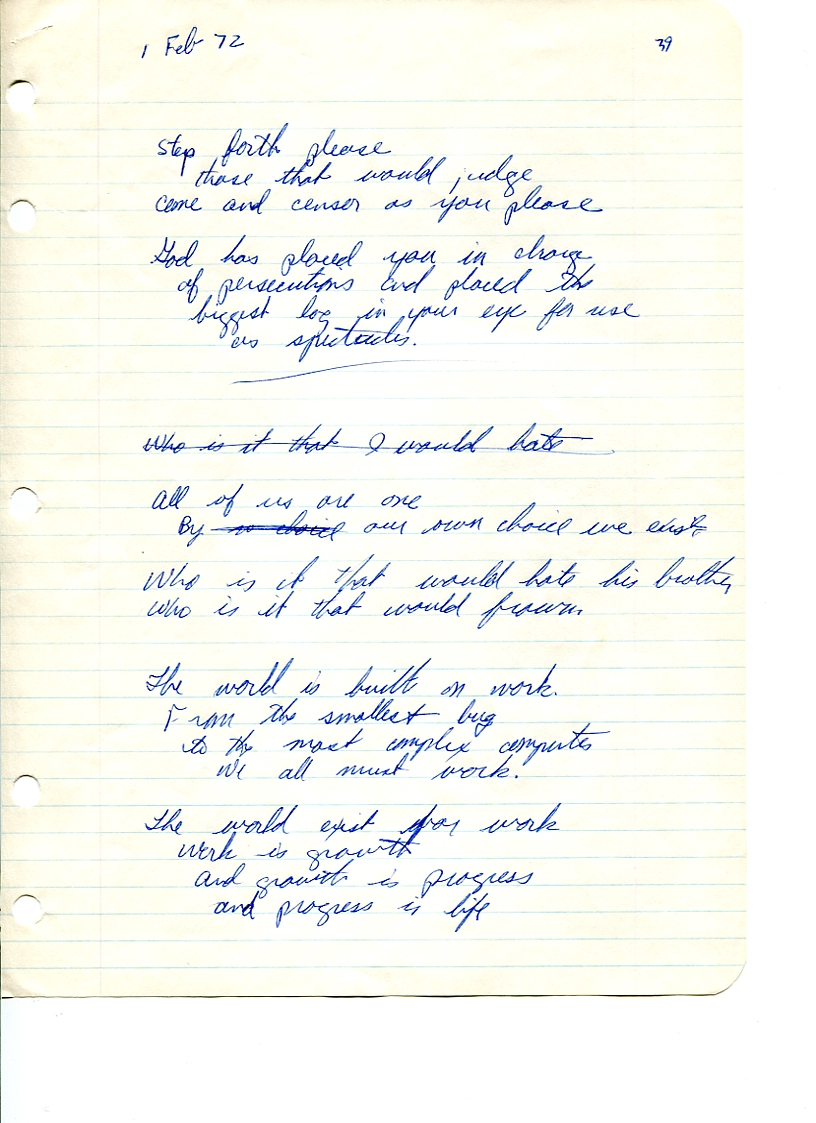 1 Feb 72
39
Step forth please
those that would judge
come and censor as you please
God has placed you in charge
of persecutions and placed the
biggest log in your eye for use
as spectacles.
Who is it that I would hate
All of us are one
By no choice our own choice we exist
Who is it that would hate his brother
Who is it that would frown
The world is built on work.
From the smallest bug
to the most complex computer
We all must work.
The world exist for work
work is growth
and growth is progress
and progress is life